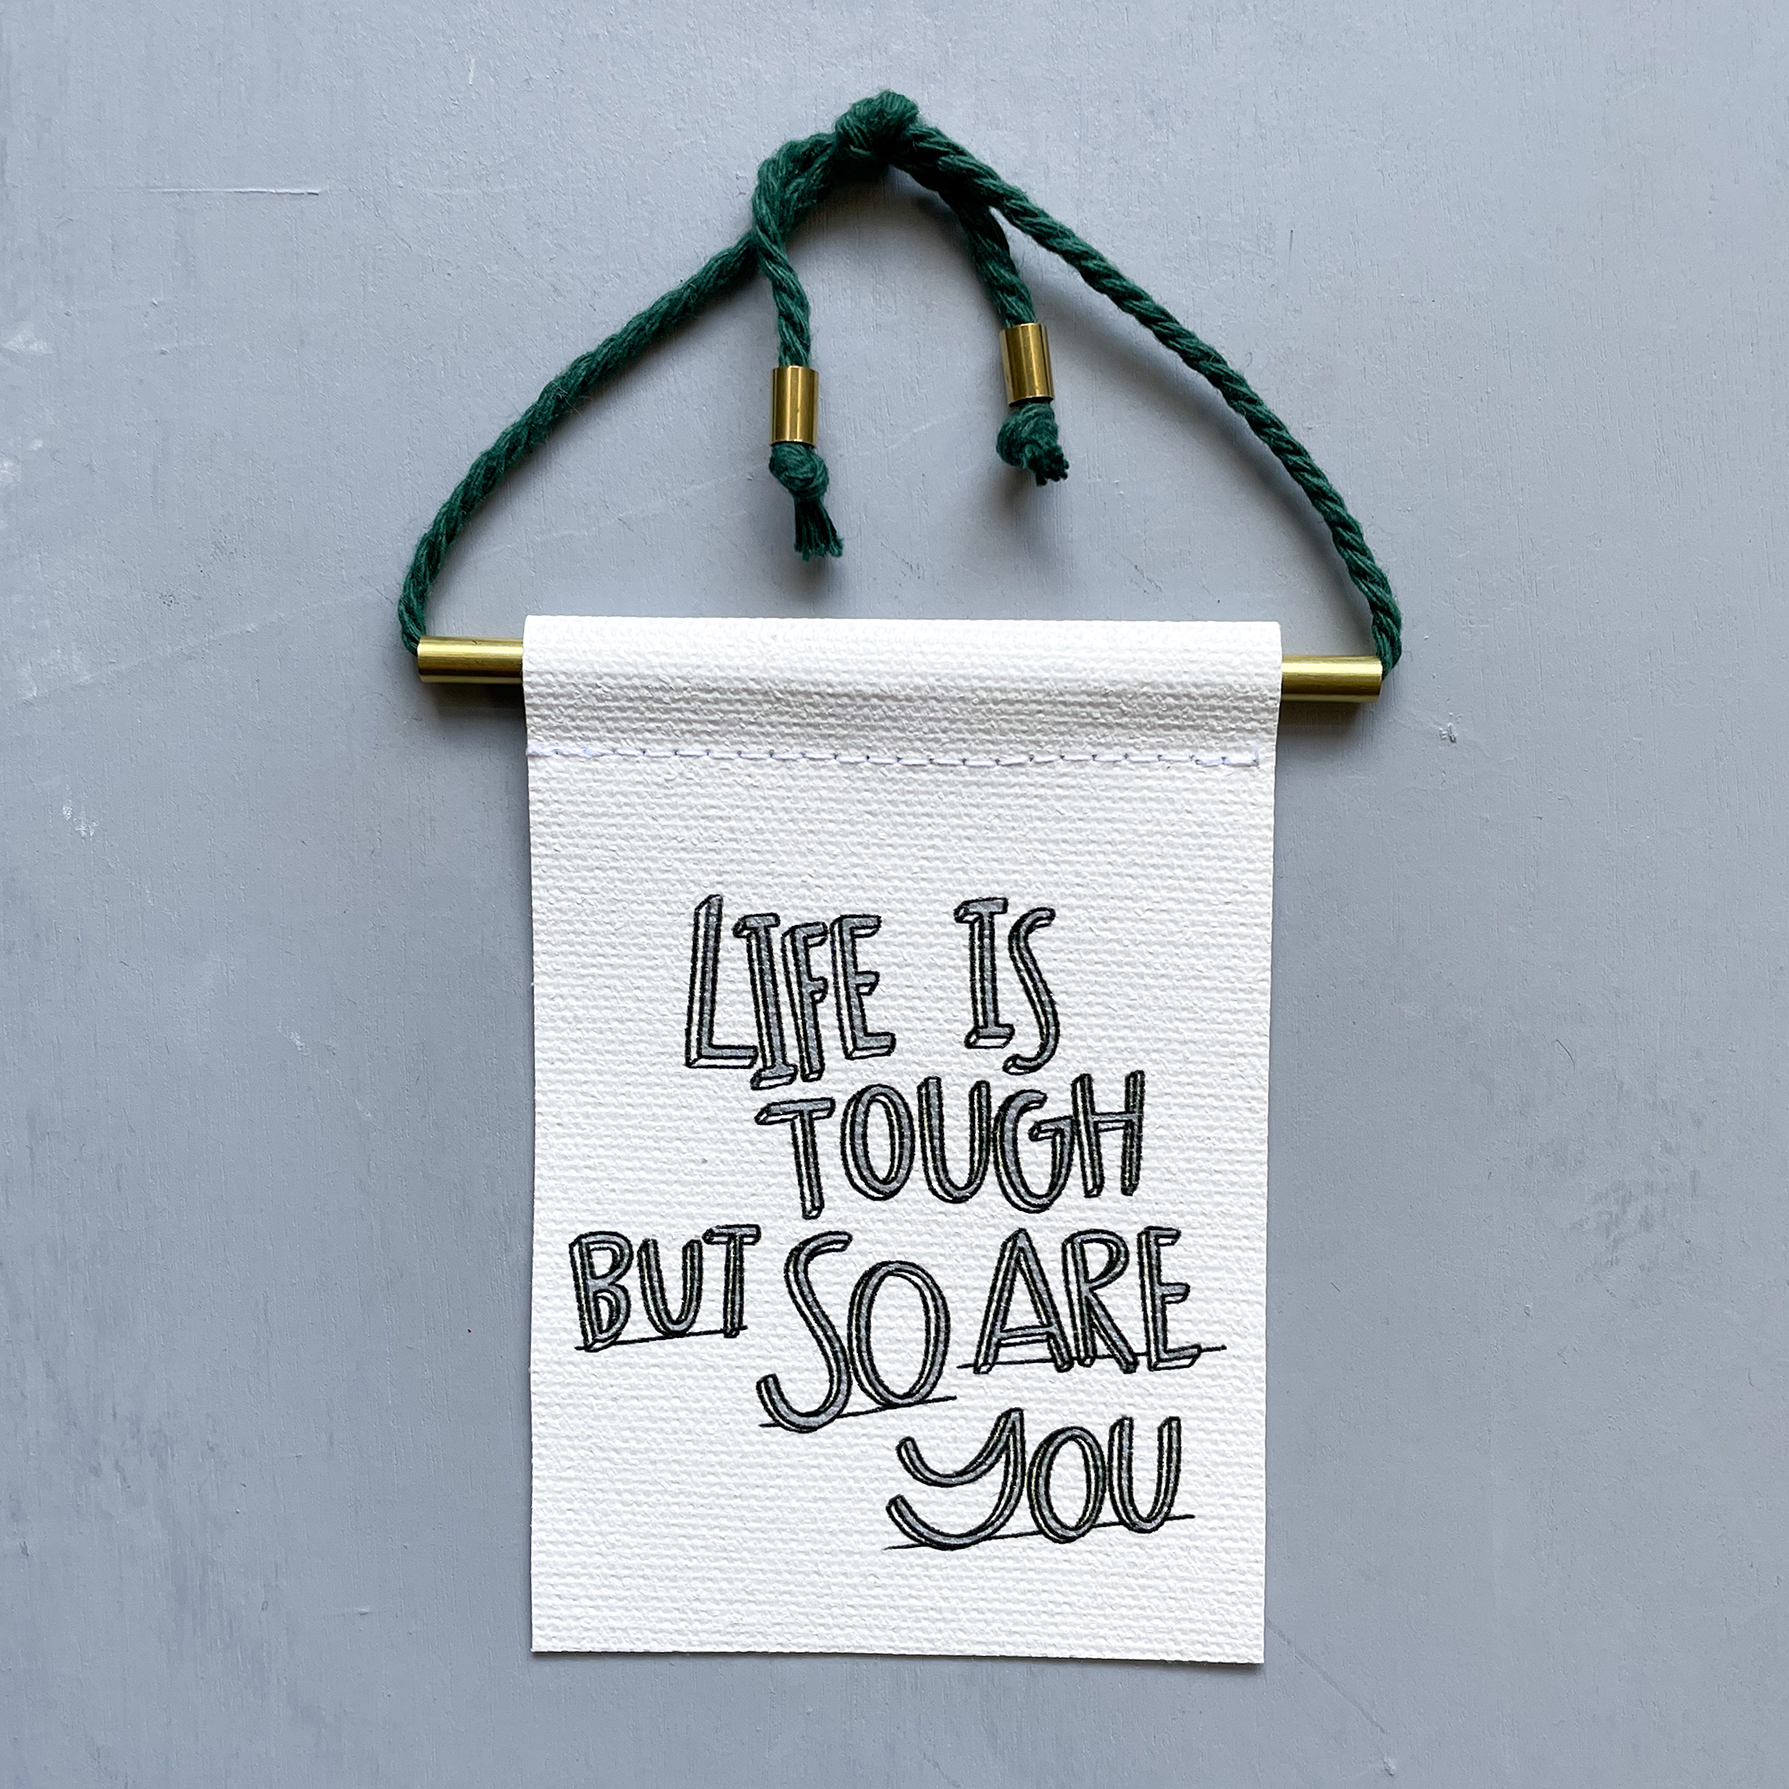 LIFE IS
TOUGH
BUT SO ARE
YOU